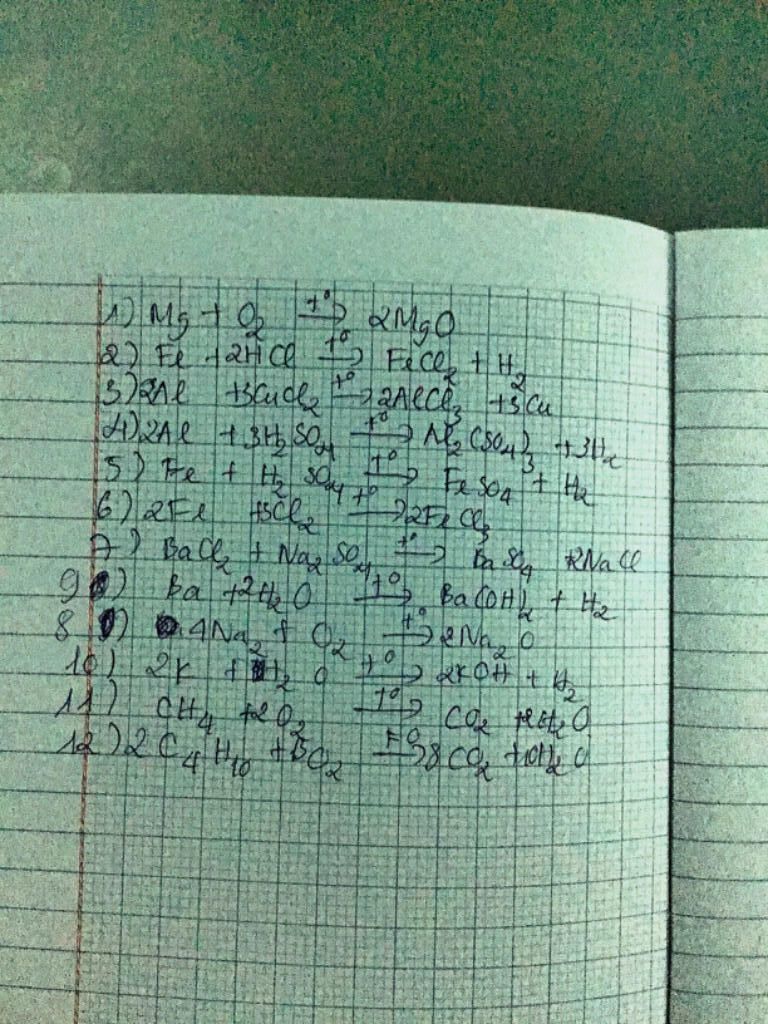 1) Mg + O₂ →(t°) 2MgO
2) Fe + 2HCl →(t°) FeCl₂ + H₂
3) 2Al + 3CuCl₂ →(t°) 2AlCl₃ + 3Cu
4) 2Al + 3H₂SO₄ →(t°) Al₂(SO₄)₃ + 3H₂
5) Fe + H₂SO₄ →(t°) FeSO₄ + H₂
6) 2Fe + 3Cl₂ →(t°) 2FeCl₃
7) BaCl₂ + Na₂SO₄ →(t°) BaSO₄ 2NaCl
9) Ba + 2H₂O →(t°) Ba(OH)₂ + H₂
8) 4Na₂ + O₂ →(t°) 2Na₂O
10) 2K + H₂O →(t°) 2KOH + H₂
11) CH₄ + 2O₂ →(t°) CO₂ + 2H₂O
12) 2C₄H₁₀ + 13O₂ →(t°) 8CO₂ + 10H₂O